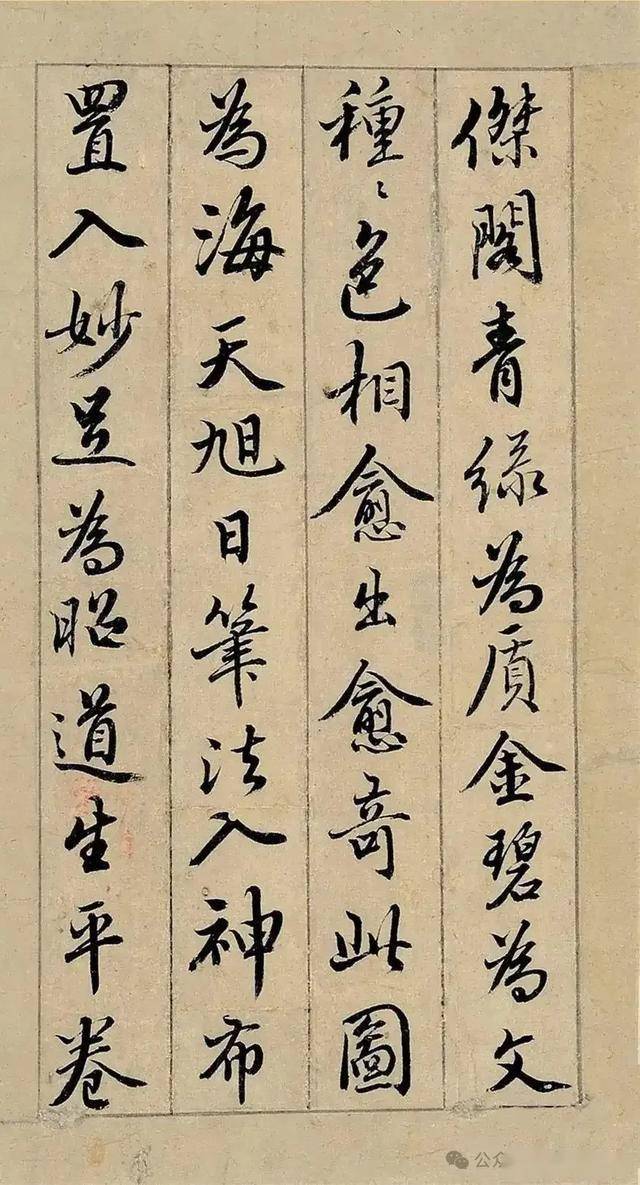 傑閣青綠為質金碧為文
種〻色相愈出愈奇此圖
為海天旭日筆法入神布
置入妙足為昭道生平卷
公众